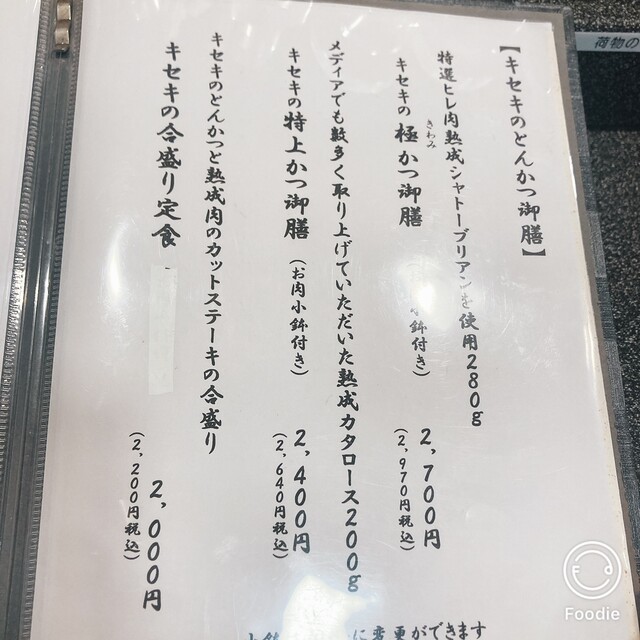 【キセキのとんかつ御膳】
特選ヒレ肉熟成シャトーブリアンを使用280g
きわみ
キセキの 極 かつ御膳
小鉢付き)
2,700円
(2,970円税込)
メディアでも数多く取り上げていただいた熟成カタロース200g
キセキの 特上 かつ御膳 (お肉小鉢付き)
2,400円
(2,640円税込)
キセキのとんかつと熟成肉のカットステーキの合盛り
キセキの合盛り定食
2,000円
(2,200円税込)
に変更ができます
荷物の
Foodie